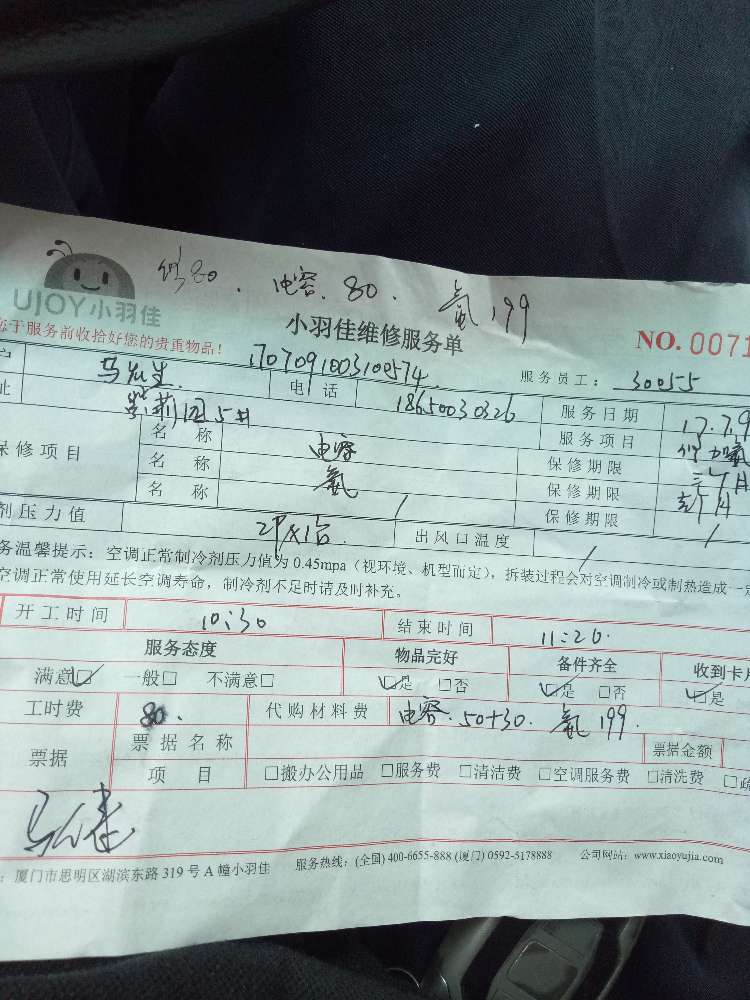 80. 电容.80. 氟199
UJOY小羽佳
小羽佳维修服务单
NO. 0071
您于服务前收拾好您的贵重物品!
1707091003100574
服务员工: 30055
马先生. 电话 18650030326 服务日期 17.7.9
址 园5# 服务项目
保修项目 名称 电容 保修期限
名称 氟 保修期限
名称 / 保修期限 /
剂压力值 出风口温度 /
务温馨提示:空调正常制冷剂压力值为0.45mpa(视环境、机型而定),拆装过程会对空调制冷或制热造成一定
空调正常使用延长空调寿命,制冷剂不足时请及时补充。
开工时间 10:30 结束时间 11:20.
服务态度 物品完好 备件齐全 收到卡
满意☑ 一般□ 不满意□ ☑是 □否 ☑是 □否 ☑是
工时费 80. 代购材料费 电容.50+30. 氟199.
票据 票据名称 票据金额
项目 □搬办公用品 □服务费 □清洁费 □空调服务费 □清洗费 □疏
:厦门市思明区湖滨东路319号A幢小羽佳 服务热线:(全国)400-6655-888 (厦门)0592-5178888 公司网站:www.xiaoyujia.com